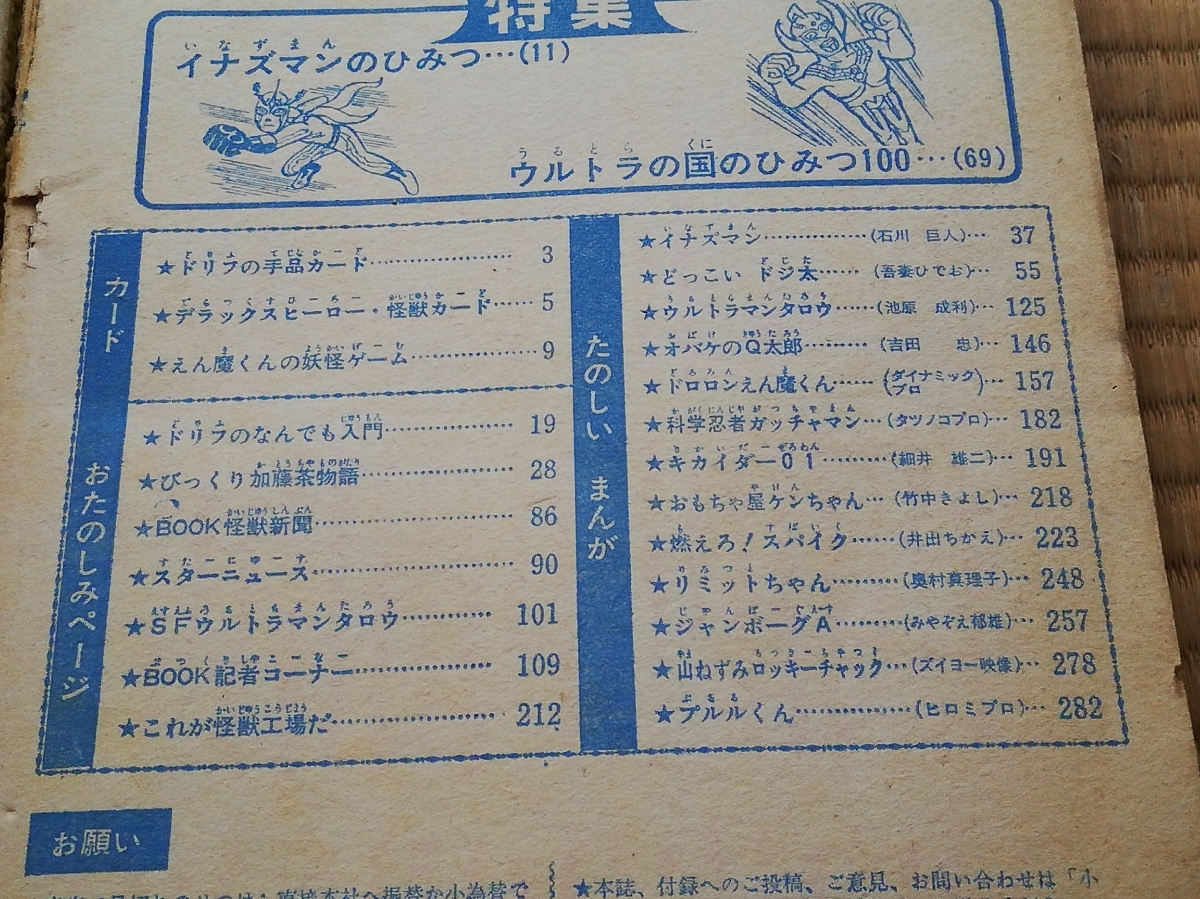 特集
イナズマンのひみつ…(11)
ウルトラの国のひみつ100…(69)
カード
★ドリフの手品カード 3
★デラックスヒーロー・怪獣カード…… 5
★えん魔くんの妖怪ゲーム 9
おたのしみページ
★ドリフのなんでも入門 19
★びっくり加藤茶物語 28
★BOOK怪獣新聞 86
★スターニュース 90
★SFウルトラマンタロウ 101
★BOOK記者コーナー 109
★これが怪獣工場だ 212
たのしい まんが
★イナズマン (石川 巨人)… 37
★どっこい ドジ太…… (吾妻ひでお)… 55
★ウルトラマンタロウ…… (池原 成利)… 125
★オバケのQ太郎 (吉田 忠)… 146
★ドロロンえん魔くん…… (ダイナミックプロ)… 157
★科学忍者ガッチャマン… (タツノコプロ)… 182
★キカイダー01 (細井 雄二)… 191
★おもちゃ屋ケンちゃん… (竹中きよし)… 218
★燃えろ!スパイク…… (井出ちかえ)… 223
★リミットちゃん (奥村真理子)… 248
★ジャンボーグA (みやぞえ郁雄)… 257
★山ねずみロッキーチャック… (ズイヨー映像)… 278
★プルルくん (ヒロミプロ)… 282
お願い
★本誌、付録へのご投稿、ご意見、お問い合わせは「小